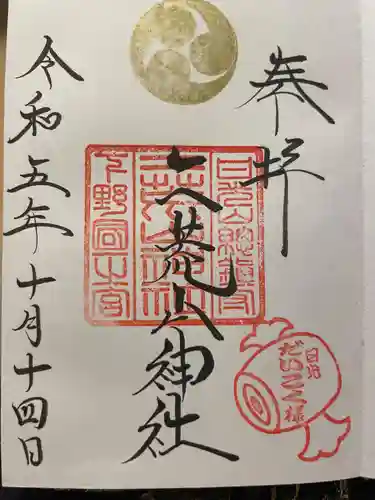 奉拝
二荒山神社
令和五年十月十四日
日光山總鎮守
二荒山神社
下野國一之宮
日光
だいこく様